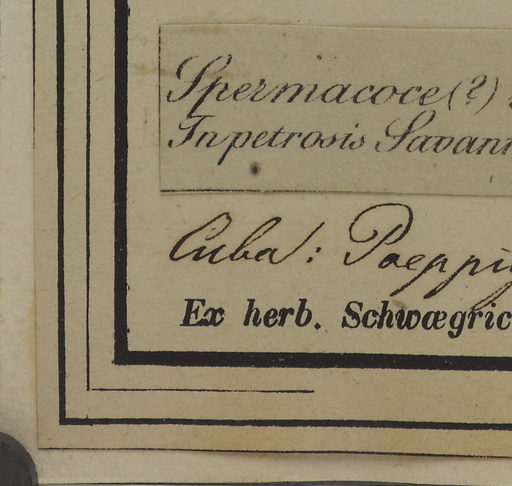 Spermacoce (?)
In petrosis Savann
Cuba: Poeppi
Ex herb. Schwœgric